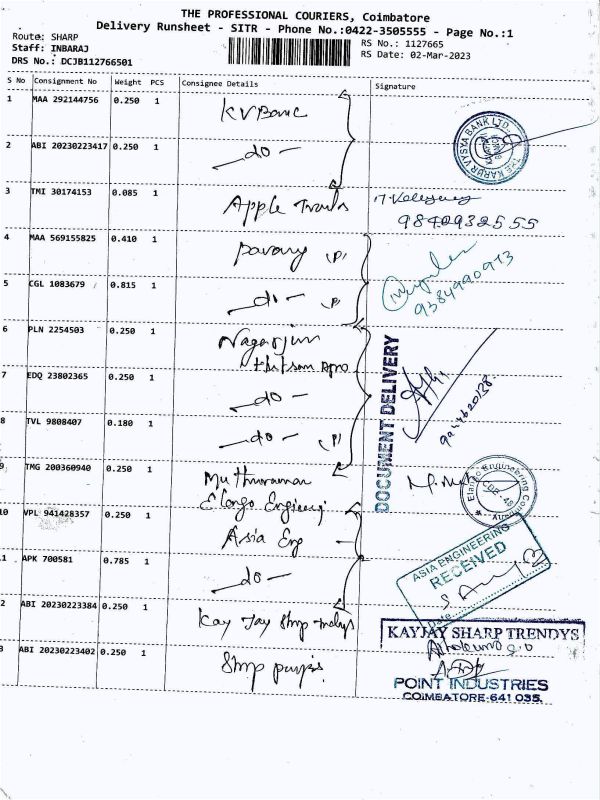 THE PROFESSIONAL COURIERS, Coimbatore
Delivery Runsheet - SITR - Phone No.:0422-3505555 - Page No.:1
Route: SHARP
Staff: INBARAJ
DRS No.: DCJB112766501
RS No.: 1127665
RS Date: 02-Mar-2023
S No Consignment No Weight PCS Consignee Details Signature
1 MAA 292144756 0.250 1 KVBank
THE KARUR VYSYA BANK LTD.
2 ABI 20230223417 0.250 1 -do-
3 TMI 30174153 0.085 1 Apple
9840932555
4 MAA 569155825 0.410 1 (P)
9384990973
5 CGL 1083679 0.815 1 -do- (P)
6 PLN 2254503 0.250 1 Nagarjun
DOCUMENT DELIVERY
7 EDQ 23802365 0.250 1 -do-
8 TVL 9808407 0.180 1 -do- (P)
9 TMG 200360940 0.250 1 Muthuraman
Elango Engineering Company
10 VPL 941428357 0.250 1 Asia Eng
ASIA ENGINEERING
RECEIVED
Date
11 APK 700581 0.785 1 -do-
12 ABI 20230223384 0.250 1 Kay Jay Shrp
KAYJAY SHARP TRENDYS
13 ABI 20230223402 0.250 1
POINT INDUSTRIES
COIMBATORE-641 035.